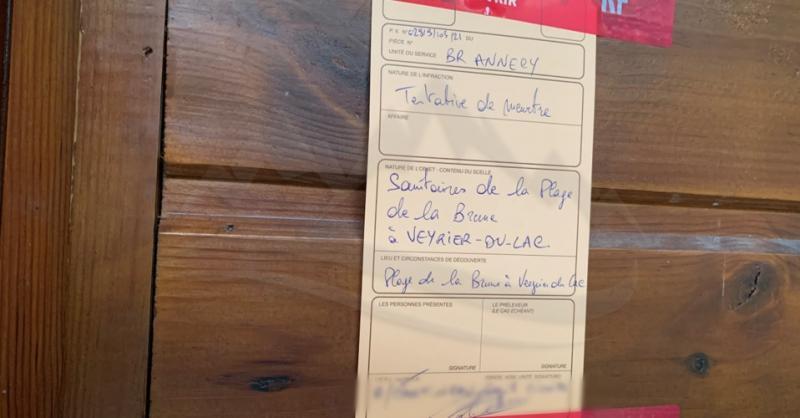 RIR
RF
P.V. N° 0285/103/21 DU
PIÈCE N°
UNITÉ DU SERVICE BR ANNECY
NATURE DE L'INFRACTION
Tentative de meurtre
AFFAIRE
NATURE DE L'OBJET - CONTENU DU SCELLÉ
Sanitaires de la Plage
de la Brune
à VEYRIER-DU-LAC
LIEU ET CIRCONSTANCES DE DÉCOUVERTE
Plage de la Brune à Veyrier du Lac
LES PERSONNES PRÉSENTES
LE PRÉLEVEUR
(LE CAS ÉCHÉANT)
SIGNATURE
SIGNATURE